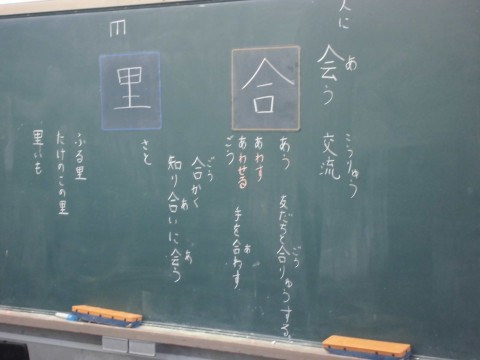 人に
会う 交流
あ こうりゅう
合
あう
あわす
あわせる
ごう
友だちと合りゅうする。
ごう
手を合わす
あ
合かく
ごう
知り合いに会う
あ あ
里
さと
ふる里
たけのこの里
里いも